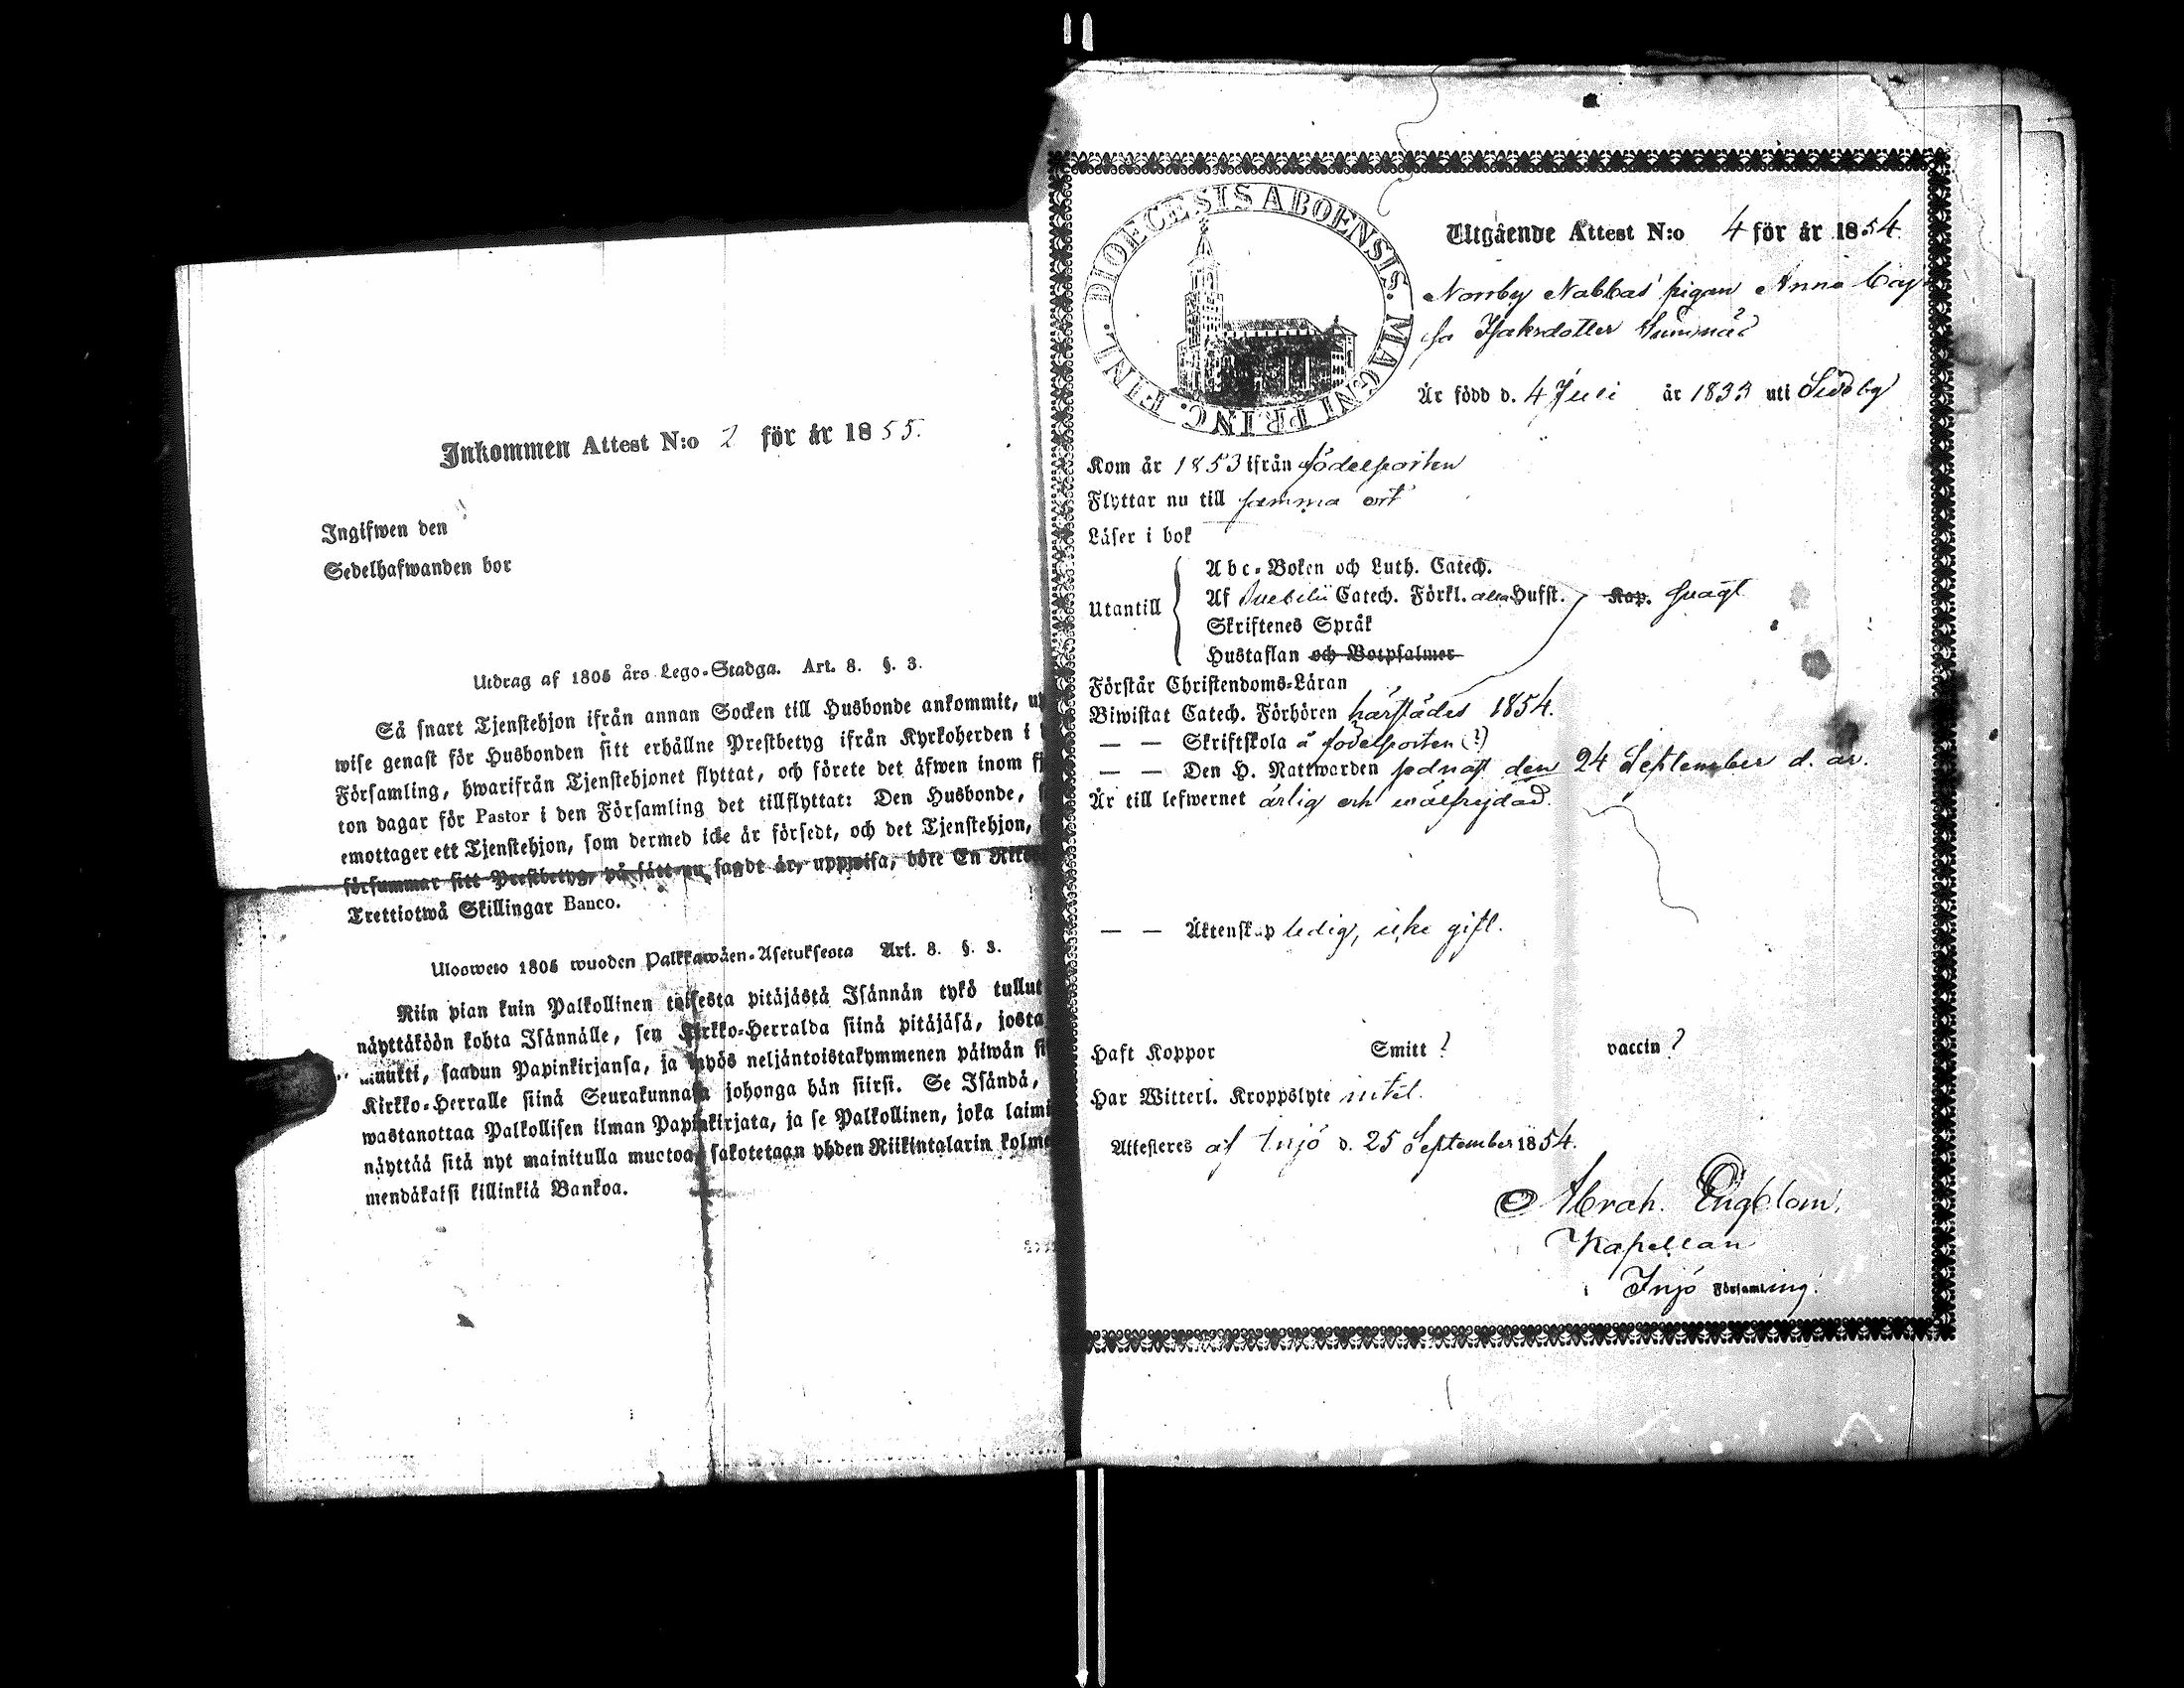 Inkommen Attest N:o 2 för år 1855.
Ingifwen den
Sedelhafwanden bor
Utdrag af 1805 års Lego-Stadga. Art. 8. §. 3.
Så snart Tjenstehjon ifrån annan Socken till Husbonde ankommit,
wise genast för Husbonden sitt erhållne Prestbetyg ifrån Kyrkoherden i
Församling, hwarifrån Tjenstehjonet flyttat, och förete det äfwen inom
ton dagar för Pastor i den Församling det tillflyttat: Den Husbonde,
emottager ett Tjenstehjon, som dermed icke är försedt, och det Tjenstehjon,
försummar sitt Prestbetyg, på sätt nu sagdt är, uppwisa, böte En
Trettiotwå Skillingar Banco.
Ulosweto 1805 wuoden Palkkawäen-Asetuksesta Art. 8. §. 3.
Niin pian kuin Palkollinen toisesta pitäjästä Isännän tykö tullut
näyttäköön kohta Isännälle, sen Kirkko-Herralda siinä pitäjäsä, josta
muutti, saadun Papinkirjansa, ja myös neljäntoistakymmenen päiwän
Kirkko-Herralle siinä Seurakunnasa johonga hän siirsi. Se Isändä,
wastanottaa Palkollisen ilman Papinkirjata, ja se Palkollinen, joka
näyttää sitä nyt mainitulla muotoa, sakotetaan yhden Riikintalarin
mendäkaksi killinkiä Bankoa.
DIOECESIS ABOENSIS. MAGNI PRINC. FINL.
Utgående Attest N:o 4 för år 1854
Norrby Nabbas pigan Anna Caj
sa Isaksdotter
Är född d. 4 Juli år 1833 uti Sideby
Kom år 1853 ifrån födelseorten
Flyttar nu till samma ort
Läser i bok
Utantill
Abc-Boken och Luth. Catech.
Af Svebelii Catech. Förkl. Husst. Kap. svagt
Skriftenes Språk
Hustaflan och Botpsalmer
Förstår Christendoms-Läran
Biwistat Catech. Förhören härstädes 1854.
— — Skriftskola å födelseorten (?)
— — Den H. Nattwarden sednast den 24 September d. år.
Är till lefwernet ärlig och wälfrejdad.
— — Äktenskap ledig, icke gift.
Haft Koppor Smitt ? vaccin ?
Har Witterl. Kroppslyte intet.
Attesteres af Injö d. 25 September 1854.
Abrah. Engblom,
Kapellan
i Injö Församling.